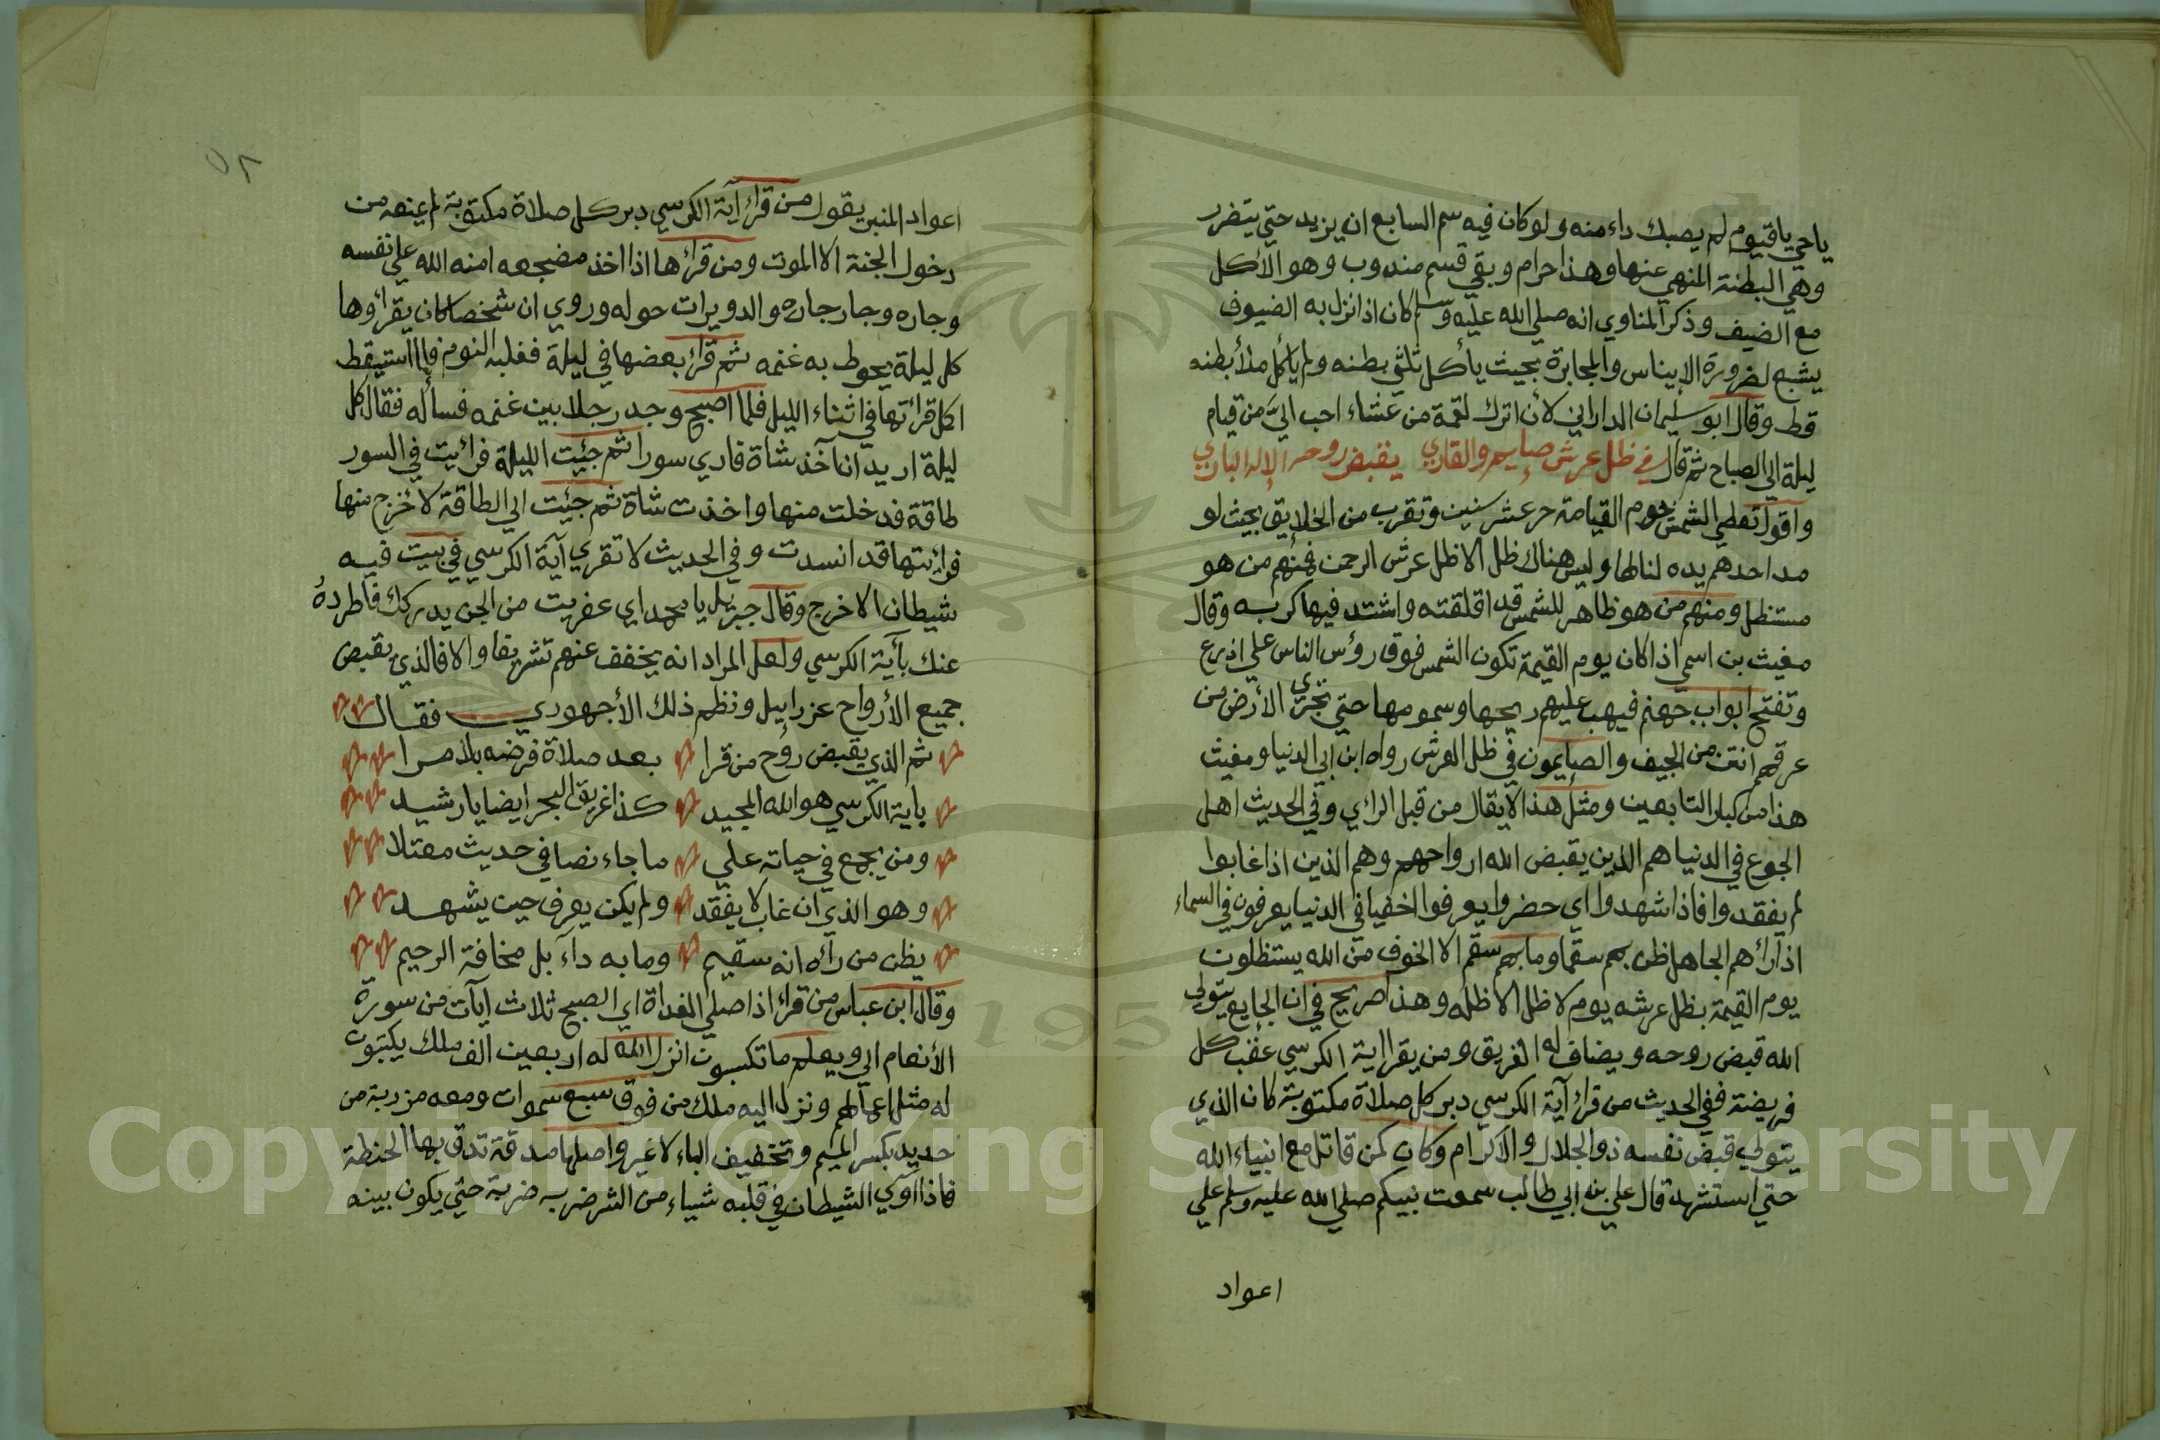 ياحي ياقيوم لم يصبك داء منه ولو كان فيه سم السابع ان يزيد حتي يتضرر
وهي البطنة المنهي عنها وهذا حرام وبقي قسم مندوب وهو الأكل
مع الضيف وذكر المناوي انه صلي الله عليه وسلم كان اذا نزل به الضيوف
يشبع لضرورة الإيناس والمجابرة بحيث يأكل ثلثي بطنه ولم يأكل ملأ بطنه
قط وقال ابو سليمان الداراني لأن اترك لقمة من عشاء احب اليّ من قيام
ليلة الي الصباح ثم قال في ظل عرش صايم والقاري يقبض روحه الإله الباري
واقول تعطي الشمس يوم القيامة حر عشر سنين وتقرب من الخلايق بحيث لو
مد احدهم يده لنالها وليس هناك ظل الا ظل عرش الرحمن فمنهم من هو
مستظل ومنهم من هو ظاهر للشمس قد اقلقته واشتد فيها كربه وقال
مغيث بن اسمي اذا كان يوم القيمة تكون الشمس فوق رؤس الناس علي اذرع
وتفتح ابواب جهنم فيهب عليهم ريحها وسمومها حتي تجري الأرض من
عرقهم انتن من الجيف والصايمون في ظل العرش رواه ابن ابي الدنيا ومغيث
هذا من كبار التابعين ومثل هذا لا يقال من قبل الراي وفي الحديث اهل
الجوع في الدنيا هم الذين يقبض الله ارواحهم وهم الذين اذا غابوا
لم يفقدوا فاذا شهدوا اي حضروا يعرفوا اخفيا في الدنيا يعرفون في السماء
اذا رائهم الجاهل ظن بهم سقما وما بهم سقم الا الخوف من الله يستظلون
يوم القيمة بظل عرشه يوم لا ظل الا ظله وهذا صريح في ان الجايع يتولي
الله قبض روحه ويضاف له الغريق ومن يقرا اية الكرسي عقب كل
فريضة ففي الحديث من قراء آية الكرسي دبر كل صلاة مكتوبة كان الذي
يتولي قبض نفسه ذو الجلال والاكرام وكان كمن قاتل مع انبياء الله
حتي استشهد قال علي بن ابي طالب سمعت نبيكم صلي الله عليه وسلم علي
اعواد
٥٢
اعواد المنبر يقول من قراء آية الكرسي دبر كل صلاة مكتوبة لم يمنعه من
دخول الجنة الا الموت ومن قرائها اذا اخذ مضجعه امنه الله علي نفسه
وجاره وجار جاره والدويرات حوله وروي ان شخصا كان يقراوها
كل ليلة يحوط به غنمه ثم قراء بعضها في ليلة فغلبه النوم فلما استيقط
اكل قرائتها في اثناء الليل فلما اصبح وجد رجلا بين غنمه فسأله فقال كل
ليلة اريد ان آخذ شاة فاري سورا ثم جئيت الليلة فرائيت في السور
طاقة فدخلت منها واخذت شاة ثم جئيت الي الطاقة لأخرج منها
فرائيتها قد انسدت وفي الحديث لا تقري آية الكرسي في بيت فيه
شيطان الا خرج وقال جبريل يا محمد اي عفريت من الجن يدركك فاطردهُ
عنك بآية الكرسي ولعل المراد انه يخفف عنهم تشريفا والا فالذي يقبض
جميع الأرواح عزراييل ونظم ذلك الأجهوري فقال
ثم الذي يقبض روح من قرا بعد صلاة فرضه بلا مرا
بآية الكرسي هو الله المجيد كذا غريق البحر ايضا يا رشيد
ومن يجع في حياته علي ما جاء نصا في حديث معتلا
وهو الذي ان غاب لا يفقد ولم يكن يعرف حين يشهد
يظن من رآه انه سقيم وما به داآ بل مخافة الرحيم
وقال ابن عباس من قراء اذا صلي الغداة اي الصبح ثلاث ايآت من سورة
الأنعام الي ويعلم ما تكسبون انزل الله له اربعين الف ملك يكتبون
له مثل اعمالهم ونزل اليه ملك من فوق سبع سموات ومعه مزربة من
حديد بكسر الميم وتخفيف الباء لا غير واصلها مدقة تدق بها الحنطة
فاذا اوي الشيطان في قلبه شياء من الشر ضربه ضربة حتي يكون بينه